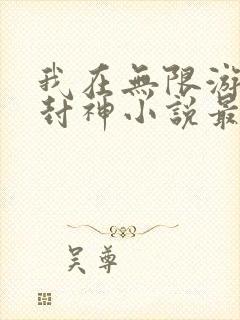 我在無限游
封神小說最
吴尊